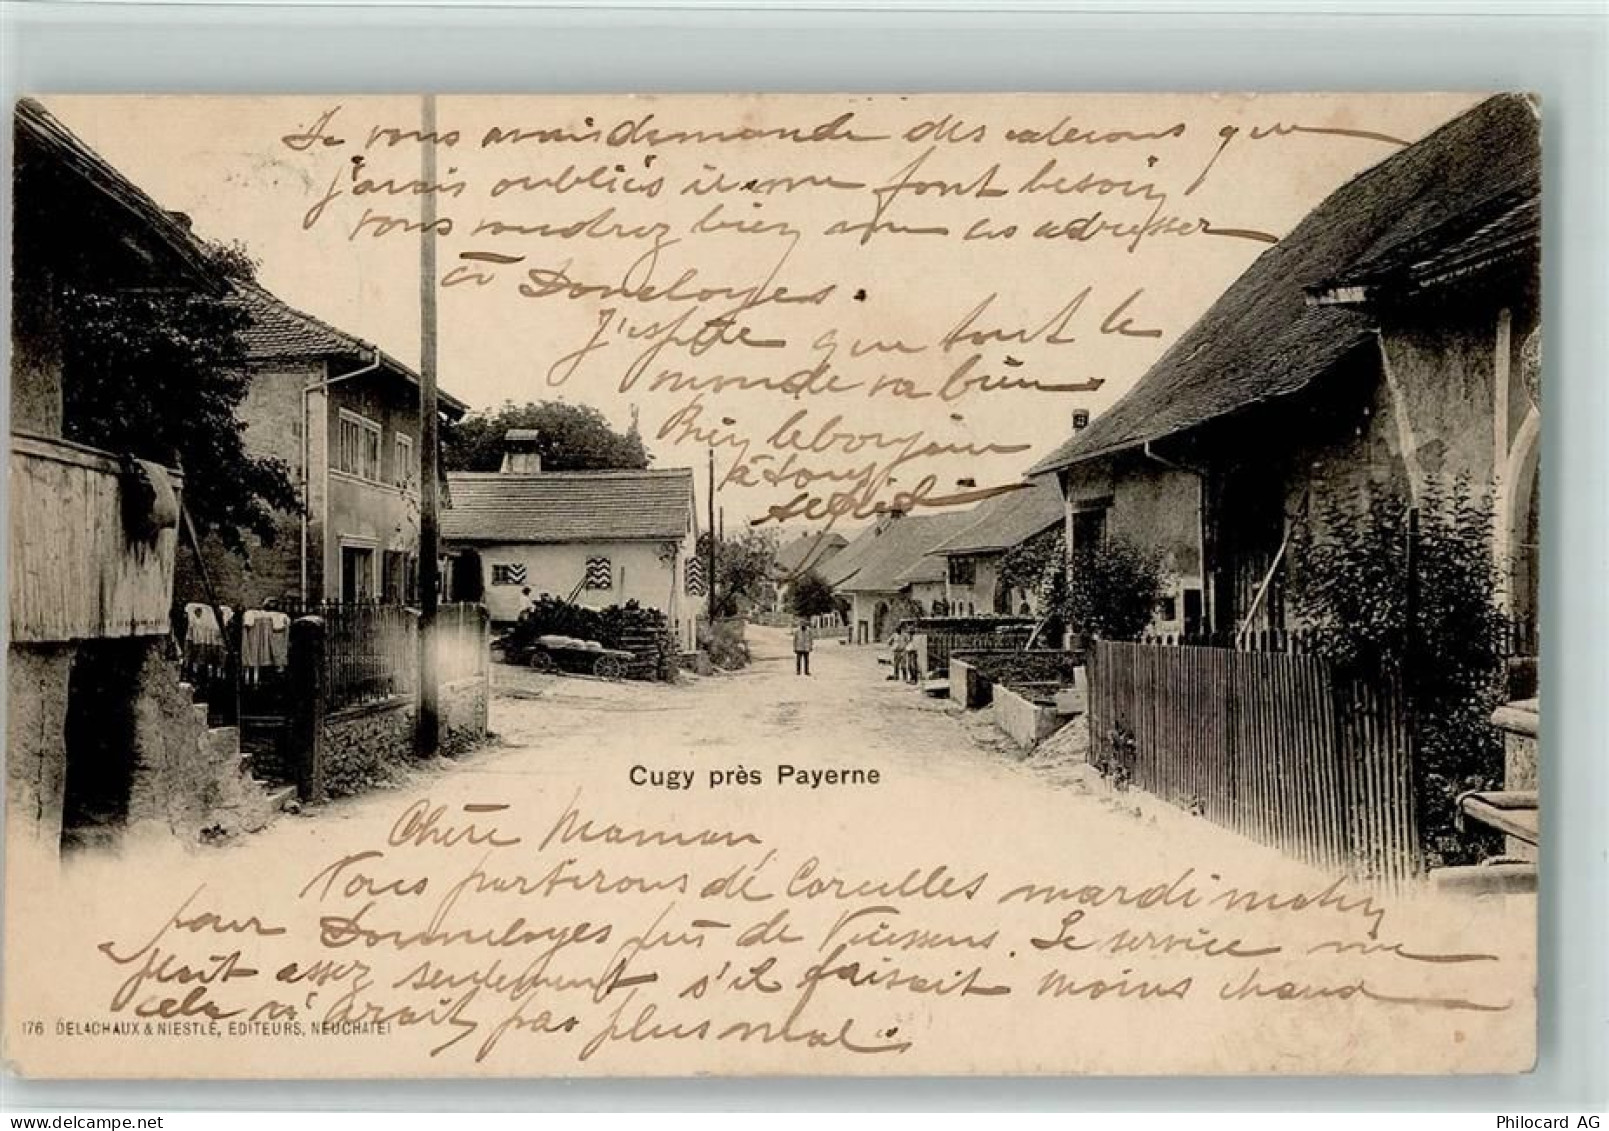 Je vous avais demandé des calecons que
j'avais oubliés ils me font besoin
vous voudrez bien me les adresser
à Donneloyes.
J'espère que tout le
monde va bien
Bien le bonjour
à tous
Cugy près Payerne
Chère Maman,
Nous partirons de Corcelles mardi matin
pour Donneloyes près de Vuissens. Le service me
plaît assez seulement s'il faisait moins chaud
cela n'irait pas plus mal.
176 DELACHAUX & NIESTLÉ, EDITEURS, NEUCHATEL
Philocard AG